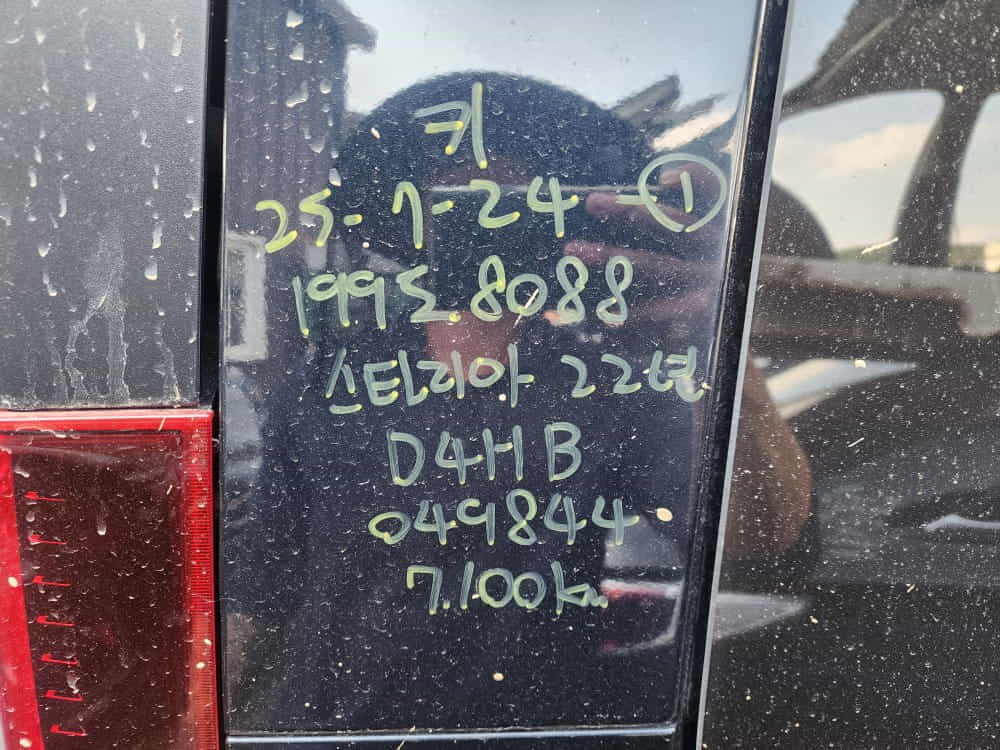 키
25-7-24-①
199도8088
스타리아 22년
D4HB
049844
7.100km